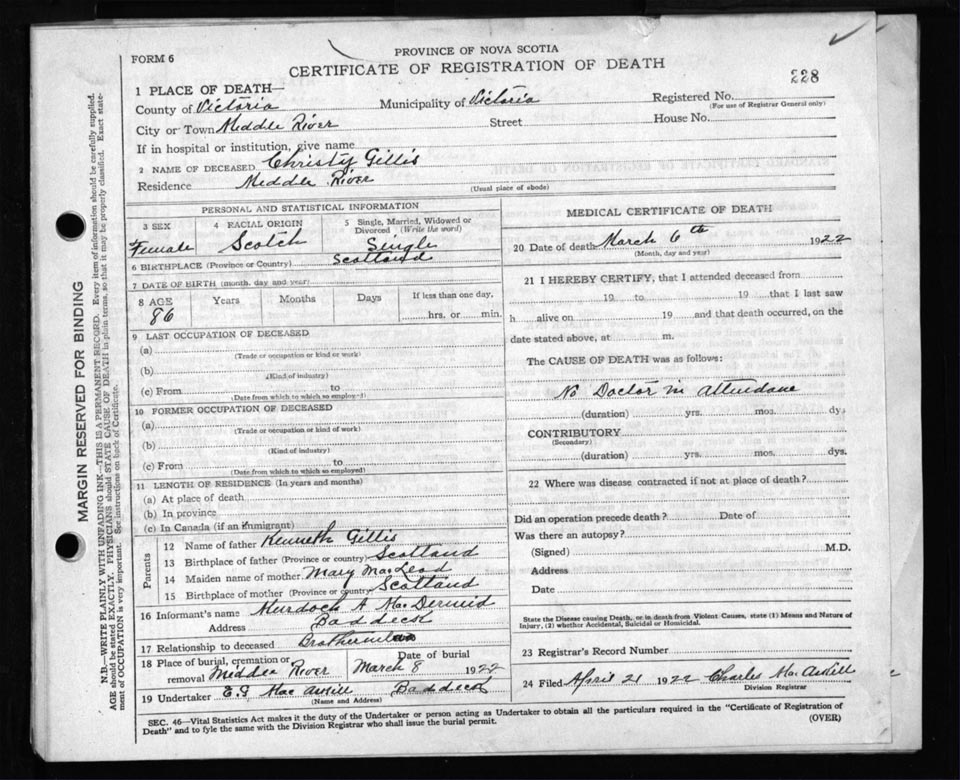 FORM 6
PROVINCE OF NOVA SCOTIA
CERTIFICATE OF REGISTRATION OF DEATH
228
1 PLACE OF DEATH—
County of Victoria Municipality of Victoria Registered No.
(For use of Registrar General only)
City or Town Middle River Street House No.
If in hospital or institution, give name
2 NAME OF DECEASED Christy Gillis
Residence Middle River
(Usual place of abode)
PERSONAL AND STATISTICAL INFORMATION
3 SEX 4 RACIAL ORIGIN 5 Single, Married, Widowed or Divorced (Write the word)
Female Scotch Single
6 BIRTHPLACE (Province or Country) Scotland
7 DATE OF BIRTH (month, day and year)
8 AGE Years Months Days If less than one day,
86 hrs. or min.
9 LAST OCCUPATION OF DECEASED
(a)
(Trade or occupation or kind of work)
(b)
(Kind of industry)
(c) From to
(Date from which to which so employed)
10 FORMER OCCUPATION OF DECEASED
(a)
(Trade or occupation or kind of work)
(b)
(Kind of industry)
(c) From to
(Date from which to which so employed)
11 LENGTH OF RESIDENCE (In years and months)
(a) At place of death
(b) In province
(c) In Canada (if an immigrant)
Parents
12 Name of father Kenneth Gillis
13 Birthplace of father (Province or country) Scotland
14 Maiden name of mother Mary MacLeod
15 Birthplace of mother (Province or country) Scotland
16 Informant's name Murdoch A MacDermid
Address Baddeck
17 Relationship to deceased
18 Place of burial, cremation or removal Middle River
Date of burial
March 8 1922
19 Undertaker Baddeck
(Name and Address)
MEDICAL CERTIFICATE OF DEATH
20 Date of death March 6th 1922
(Month, day and year)
21 I HEREBY CERTIFY, that I attended deceased from
19 to 19 that I last saw
h alive on 19 and that death occurred, on the
date stated above, at m.
The CAUSE OF DEATH was as follows:
No Doctor in Attendance
(duration) yrs. mos. dys
CONTRIBUTORY
(Secondary)
(duration) yrs. mos. dys.
22 Where was disease contracted if not at place of death?
Did an operation precede death? Date of
Was there an autopsy?
(Signed) M.D.
Address
Date
State the Disease causing Death, or in death from Violent Causes, state (1) Means and Nature of
Injury, (2) whether Accidental, Suicidal or Homicidal.
23 Registrar's Record Number
24 Filed April 21 1922 Charles
Division Registrar
SEC. 46—Vital Statistics Act makes it the duty of the Undertaker or person acting as Undertaker to obtain all the particulars required in the "Certificate of Registration of
Death" and to fyle the same with the Division Registrar who shall issue the burial permit.
(OVER)
MARGIN RESERVED FOR BINDING
N.B.—WRITE PLAINLY WITH UNFADING INK—THIS IS A PERMANENT RECORD. Every item of information should be carefully supplied.
AGE should be stated EXACTLY. PHYSICIANS should STATE CAUSE OF DEATH in plain terms, so that it may be properly classified. Exact state-
ment of OCCUPATION is very important. See instructions on back of Certificate.